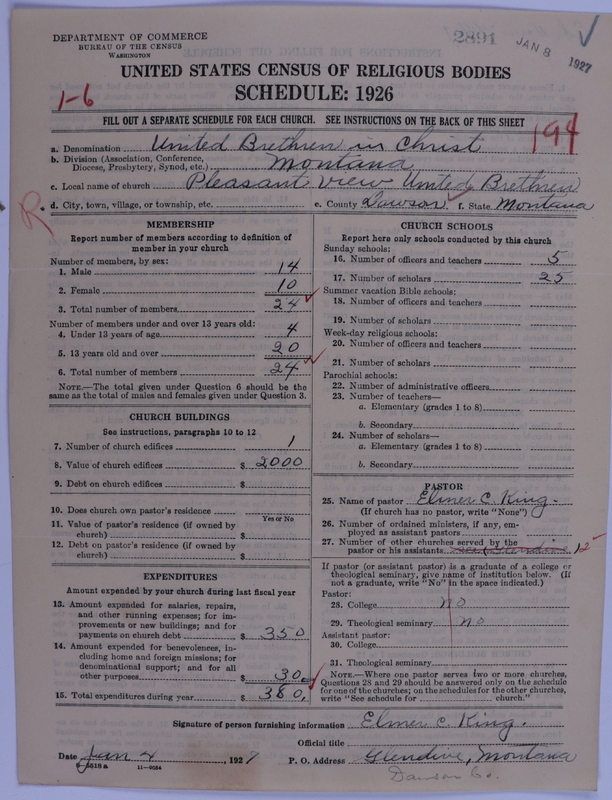 DEPARTMENT OF COMMERCE
BUREAU OF THE CENSUS
WASHINGTON
2891
JAN 8 1927
UNITED STATES CENSUS OF RELIGIOUS BODIES
SCHEDULE: 1926
1-6
FILL OUT A SEPARATE SCHEDULE FOR EACH CHURCH. SEE INSTRUCTIONS ON THE BACK OF THIS SHEET
194
a. Denomination United Brethren in Christ
b. Division (Association, Conference, Diocese, Presbytery, Synod, etc.) Montana
c. Local name of church Pleasant View United Brethren
R
d. City, town, village, or township, etc. e. County Dawson f. State Montana
MEMBERSHIP
Report number of members according to definition of
member in your church
Number of members, by sex:
1. Male 14
2. Female 10
3. Total number of members 24
Number of members under and over 13 years old:
4. Under 13 years of age 4
5. 13 years old and over 20
6. Total number of members 24
NOTE.—The total given under Question 6 should be
same as the total of males and females given under Question 3.
CHURCH BUILDINGS
See instructions, paragraphs 10 to 12
7. Number of church edifices 1
8. Value of church edifices $ 2000
9. Debt on church edifices $
10. Does church own pastor's residence
Yes or No
11. Value of pastor's residence (if owned by
church) $
12. Debt on pastor's residence (if owned by
church) $
EXPENDITURES
Amount expended by your church during last fiscal year
13. Amount expended for salaries, repairs,
and other running expenses; for im-
provements or new buildings; and for
payments on church debt $ 350
14. Amount expended for benevolences, in-
cluding home and foreign missions; for
denominational support; and for all
other purposes $ 30
15. Total expenditures during year $ 380.
CHURCH SCHOOLS
Report here only schools conducted by this church
Sunday schools:
16. Number of officers and teachers 5
17. Number of scholars 25
Summer vacation Bible schools:
18. Number of officers and teachers
19. Number of scholars
Week-day religious schools:
20. Number of officers and teachers
21. Number of scholars
Parochial schools:
22. Number of administrative officers
23. Number of teachers—
a. Elementary (grades 1 to 8)
b. Secondary
24. Number of scholars—
a. Elementary (grades 1 to 8)
b. Secondary
PASTOR
25. Name of pastor Elmer C. King.
(If church has no pastor, write "None")
26. Number of ordained ministers, if any, em-
ployed as assistant pastors
27. Number of other churches served by the
pastor or his assistants
If pastor (or assistant pastor) is a graduate of a college or
theological seminary, give name of institution below. (If
not a graduate, write "No" in the space indicated.)
Pastor:
28. College no
29. Theological seminary no
Assistant pastor:
30. College
31. Theological seminary
NOTE.—Where one pastor serves two or more churches,
Questions 28 and 29 should be answered only on the schedule
for one of the churches; on the schedules for the other churches,
write "See schedule for church."
Signature of person furnishing information Elmer C. King.
Official title
Date Jan 4, 1927 P. O. Address Glendive, Montana
8-5518a 11-9034
Dawson Co.